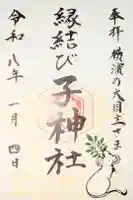 奉拝 横濱の大国主さま
縁結び 子神社
令和八年一月四日